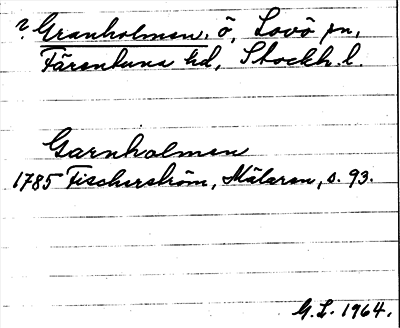 ? Granholmen, ö, Lovö sn,
Färentuna hd, Stockh. l.
Garnholmen
1785 Fischerström, Mälaren, s. 93.
G.L. 1964.